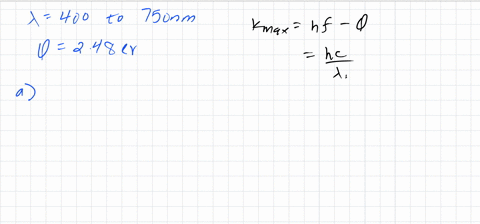 λ = 400 to 750nm
φ = 2.48 ev
a)
Kmax = hf - φ
= hc/λ.